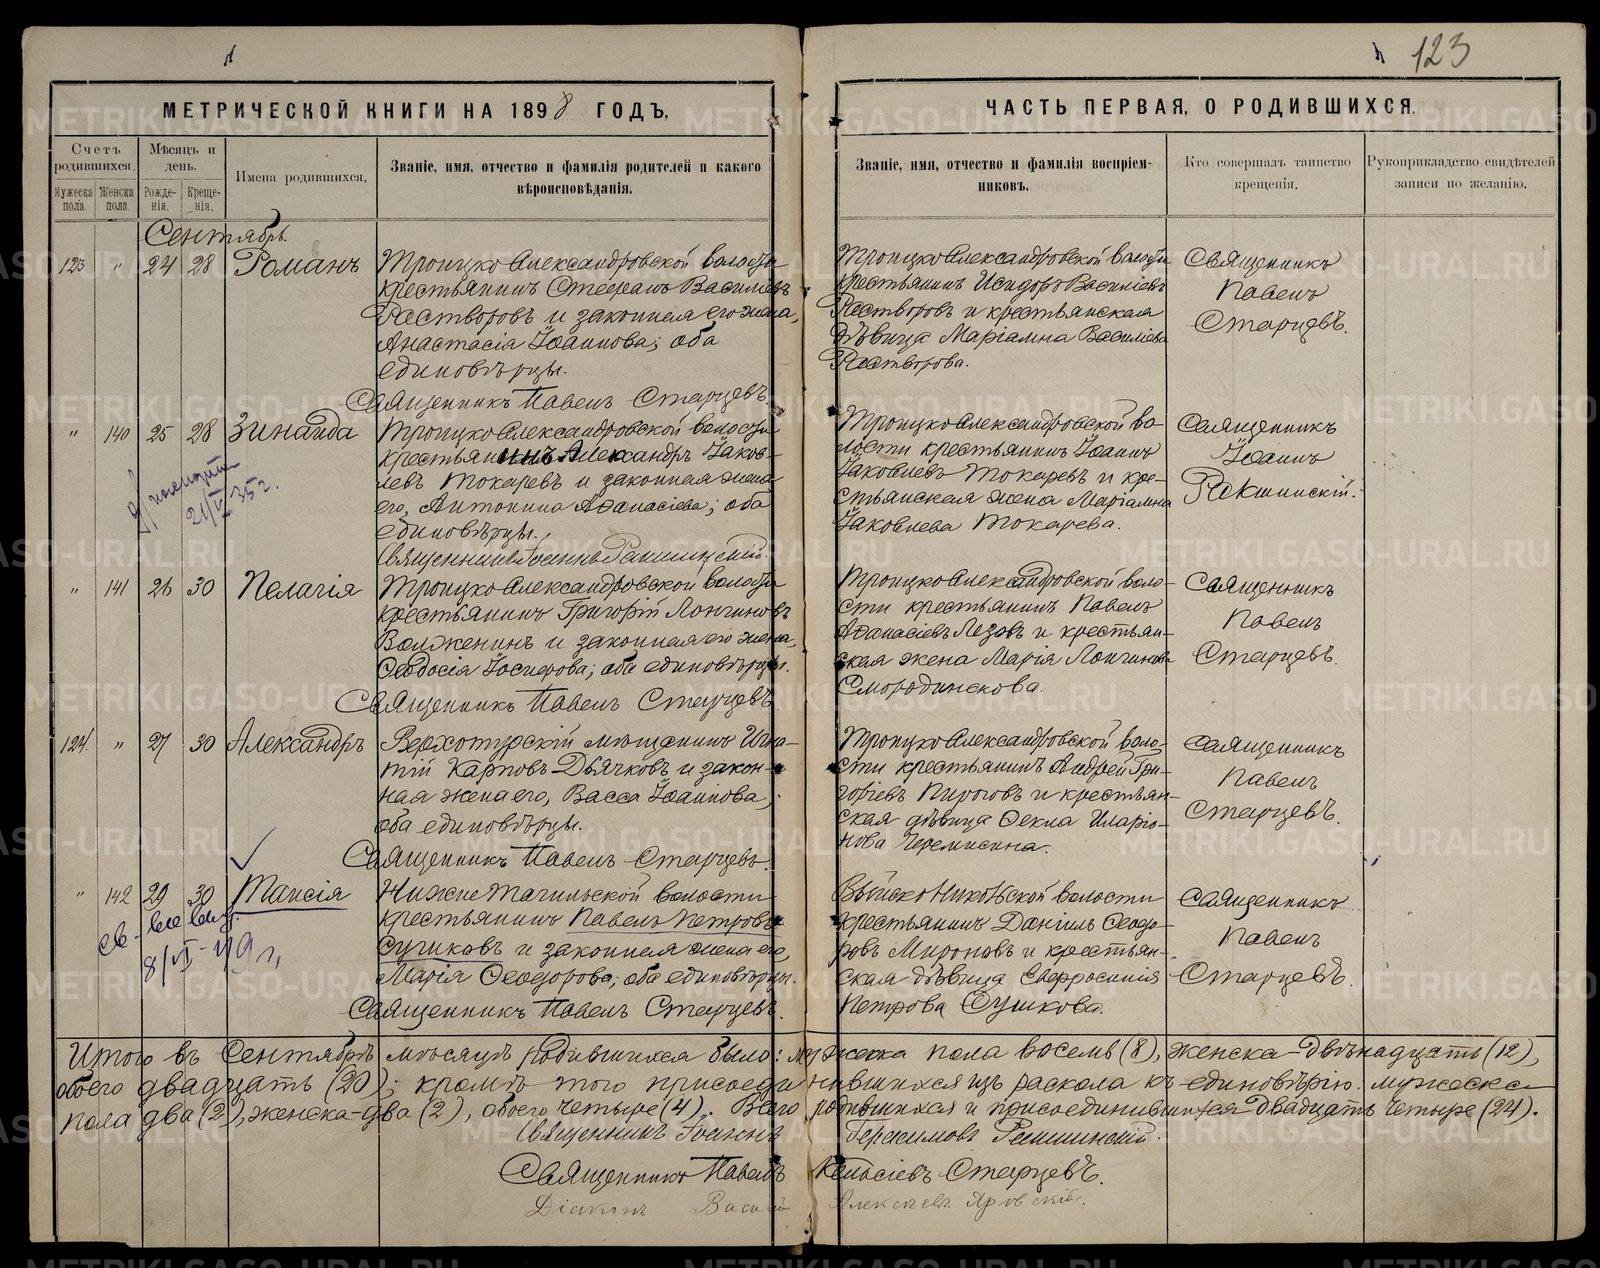 123
МЕТРИЧЕСКОЙ КНИГИ НА 1898 ГОДЪ,
Счетъ родившихся.
Мужеска пола.
Женска пола.
Мѣсяцъ и день.
Рожде-
нія.
Креще-
нія.
Имена родившихся.
Званіе, имя, отчество и фамилія родителей и какого
вѣроисповѣданія.
Сентябрь.
123 " 24 28 Романъ
Троицко Александровской волости
крестьянинъ Стефанъ Васильевъ
Растворовъ и законная его жена,
Анастасія Іоаннова; оба
единовѣрцы.
Священникъ Павелъ Старцевъ
" 140 25 28 Зинаида
Троицко Александровской волости
крестьянинъ Александръ Іаков-
левъ Токаревъ и законная жена
его, Антонина Аѳанасіева; оба
единовѣрцы.
Священникъ Іоаннъ Ракшинскій.
21/IV 35 г.
" 141 26 30 Пелагія
Троицко Александровской волости
крестьянинъ Григорій Лонгиновъ
Волженинъ и законная его жена,
Ѳеодосія Іосифова; оба единовѣрцы.
Священникъ Павелъ Старцевъ
124 " 27 30 Александръ
Верхотурскій мѣщанинъ Игна-
тій Карповъ Дьячковъ и закон-
ная жена его, Васса Іоаннова;
оба единовѣрцы.
Священникъ Павелъ Старцевъ.
" 142 29 30 Таисія
Нижне Тагильской волости
крестьянинъ Павелъ Петровъ
Сушковъ и законная жена его,
Марія Ѳеодорова; оба единовѣрцы.
Священникъ Павелъ Старцевъ.
ЧАСТЬ ПЕРВАЯ, О РОДИВШИХСЯ.
Званіе, имя, отчество и фамилія воспріем-
никовъ.
Кто совершалъ таинство
крещенія.
Рукоприкладство свидѣтелей
записи по желанію.
Троицко Александровской волости
крестьянинъ Исидоръ Васильевъ
Растворовъ и крестьянская
дѣвица Маріамна Васильева
Растворова.
Священникъ
Павелъ
Старцевъ.
Троицко Александровской во-
лости крестьянинъ Іоаннъ
Іаковлевъ Токаревъ и кре-
стьянская жена Маріамна
Іаковлева Токарева.
Священникъ
Іоаннъ
Ракшинскій.
Троицко Александровской воло-
сти крестьянинъ Павелъ
Аѳанасіевъ Лезовъ и крестьян-
ская жена Марія Лонгинова
Смородинскова.
Священникъ
Павелъ
Старцевъ.
Троицко Александровской воло-
сти крестьянинъ Андрей Гри-
горіевъ Пироговъ и крестьян-
ская дѣвица Ѳекла Иларіо-
нова Черемисина.
Священникъ
Павелъ
Старцевъ.
Выйско Никольской волости
крестьянинъ Даніилъ Ѳеодо-
ровъ Мироновъ и крестьян-
ская дѣвица Евфросинія
Петрова Сушкова.
Священникъ
Павелъ
Старцевъ.
Итого въ Сентябрѣ мѣсяцѣ родившихся было: мужеска пола восемь (8), женска-двѣнадцать (12),
обоего двадцать (20); кромѣ того присоединившихся изъ раскола къ единовѣрію: мужеска
пола два (2), женска-два (2), обоего четыре (4). Всего родившихся и присоединившихся двадцать четыре (24).
Священникъ Іоаннъ Герасимовъ Ракшинскій.
Священникъ Павелъ Старцевъ.
Діаконъ Василій Алексѣевъ Яровскій.
METRIKI.GASO-URAL.RU